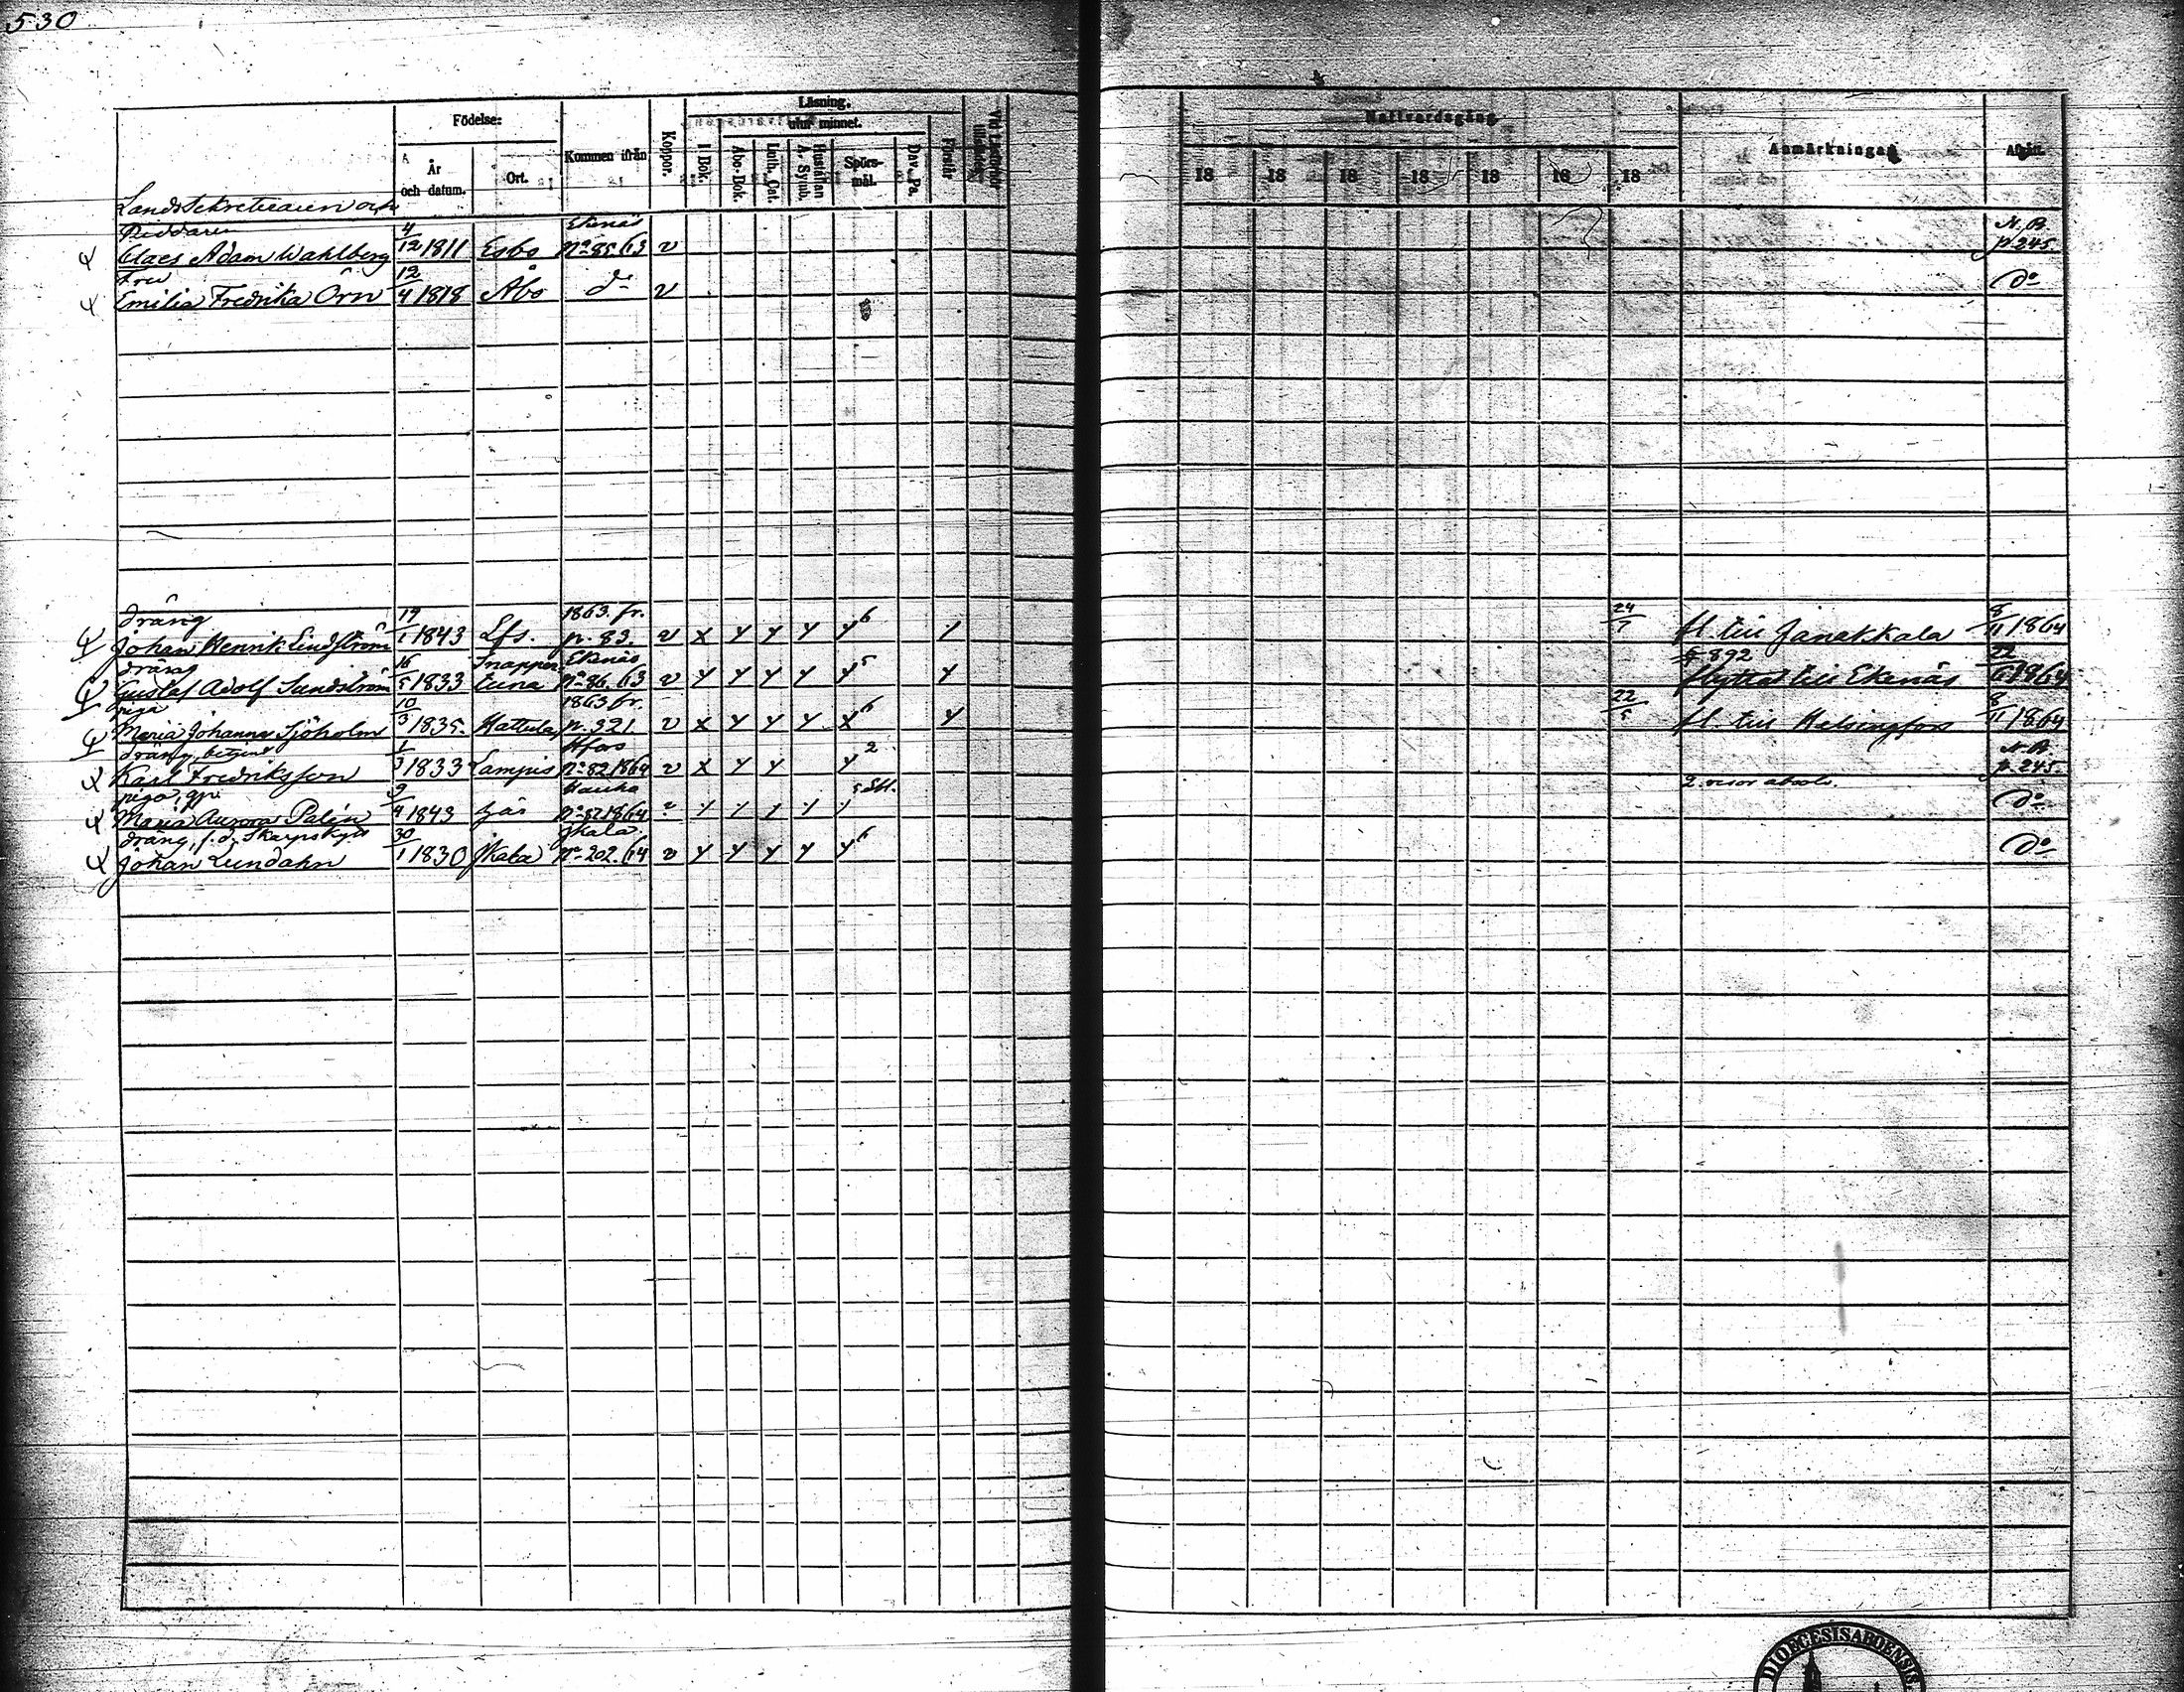 530
Födelse:
År
och datum.
Ort.
Kommen ifrån
Koppor.
Läsning.
utur minnet.
I Bok.
Abc-Bok.
Luth. Cat.
Hustaflan
A. Symb.
Spörs-
mål.
Dav. Ps.
Förstår
Nattvardsgång
18 18 18 18 18 18 18
Anmärkningar
Afgått.
Landssekreteraren och
Riddaren 4 Ekenäs N.B.
Claes Adam Wahlberg 12 1811 Esbo No 85. 63 v p. 245.
Fru 12
Emilia Fredrika Örn 4 1818 Åbo do v do
dräng 19 1863. fr. 6 24 8
Johan Henrik Lindström 1 1843 Lfs. p. 83. v x y y y y / 7 fl. till Janakkala 11 1864
dräng 16 Snapper Ekenäs 5 892 22
Gustaf Adolf Sundström 5 1833 tuna No 86. 63 v y y y y y y flyttat till Ekenäs 1864
piga 10 1863 fr. 6 22 8
Maria Johanna Sjöholm 3 1835. Hattula p. 321. v x y y y x y 5 fl. till Helsingfors 11 1864
dräng, betjent 1 Hfors 2 N.B.
Karl Fredriksson 3 1833 Lampis No 82 1864 v x y y y p. 245.
piga, Hauho 2. resor absolv.
Maria Aurora Palén 4 1843 1864 do
dräng, f.d. Skarpskytt 30 Jkala. 6
Johan Lundahn 1 1830 Jkala No 202. 64 v y y y y y do
DIOECESIS ABOENSIS